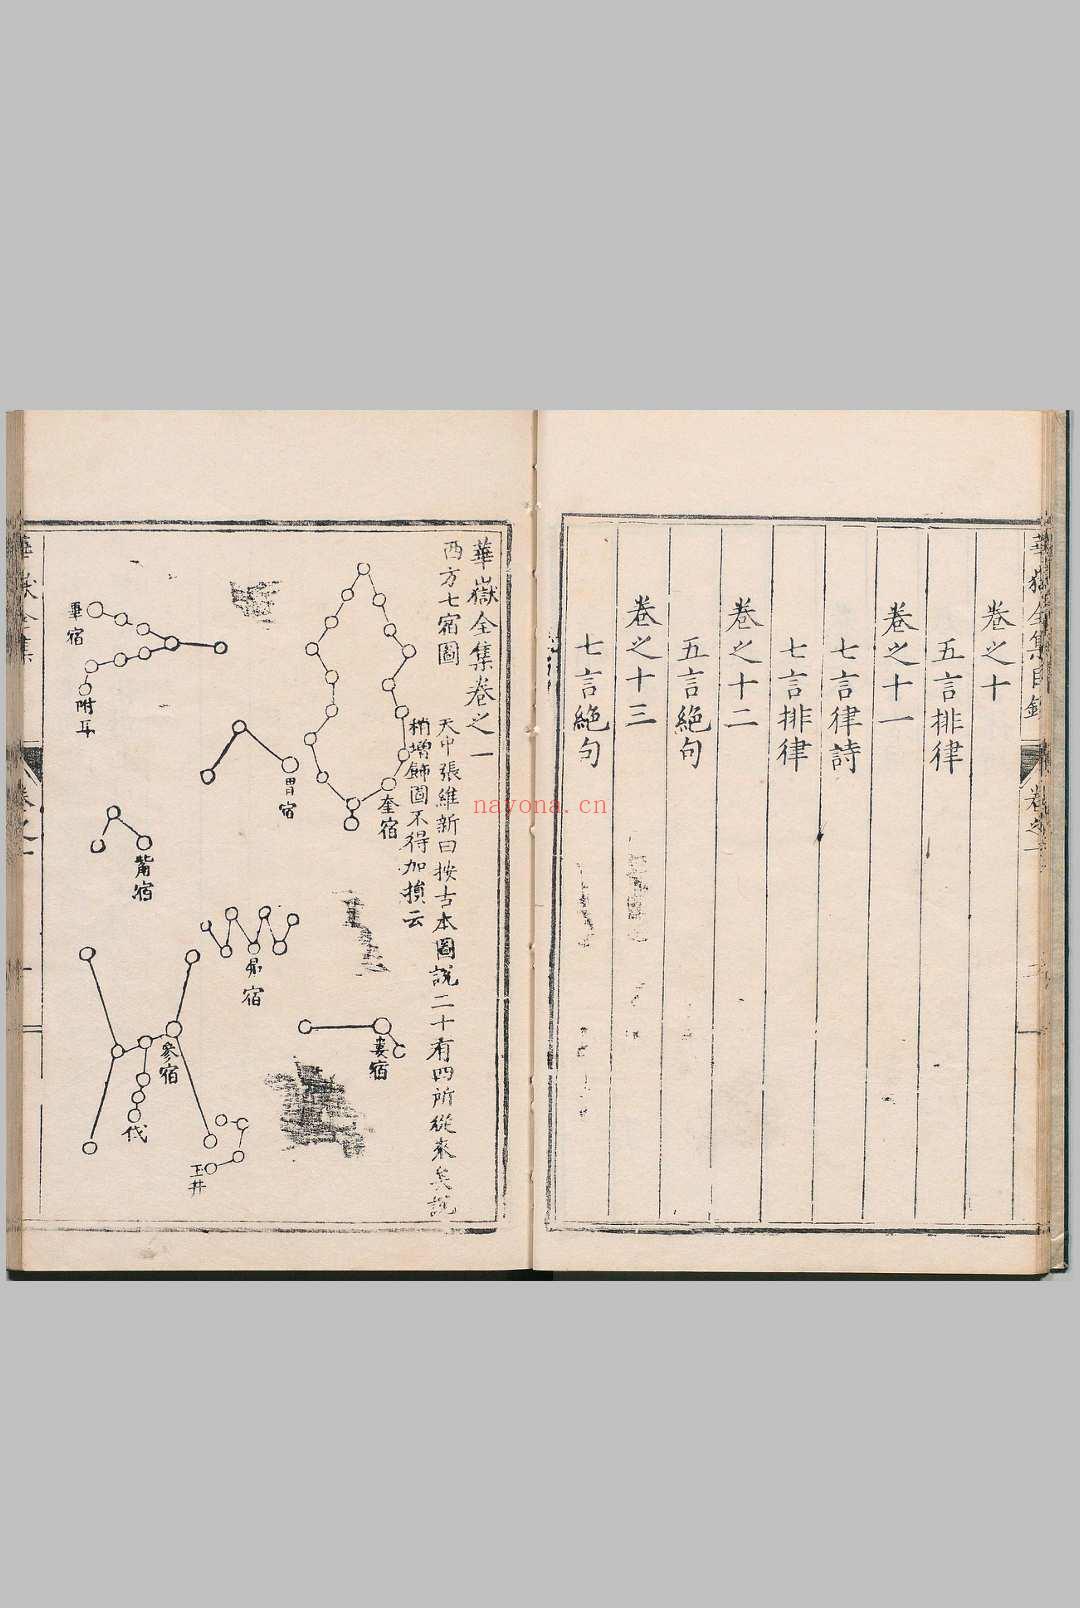 華嶽全集目錄
卷之十
五言排律
卷之十一
七言律詩
七言排律
卷之十二
五言絶句
卷之十三
七言絶句
華嶽全集卷之一
西方七宿圖
天中張維新曰按古本圖說二十有四所從來矣說
稍增飾圖不得加損云
奎宿
婁宿
胃宿
昴宿
畢宿
附耳
觜宿
參宿
伐
玉井
華嶽全集
卷之一
nayona.cn